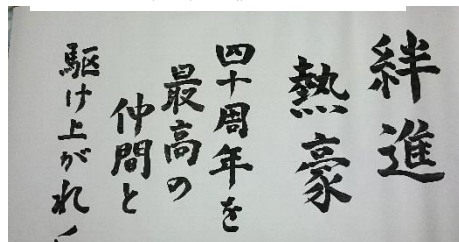 絆進
熱豪
四十周年を
最高の
仲間と
駆け上がれ